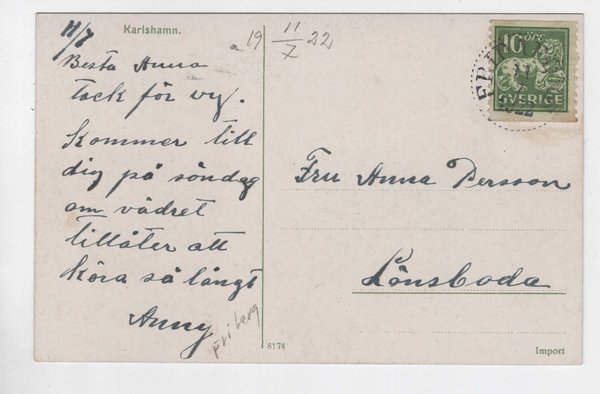 Karlshamn.
11/7
Besta Anna
tack för vy.
Kommer till
dig på söndag
om vädret
tillåter att
köra så långt
Anny
Friberg
19 11/7 22
10 ÖRE
SVERIGE
Fru Anna Persson
Lönsboda
8174
Import